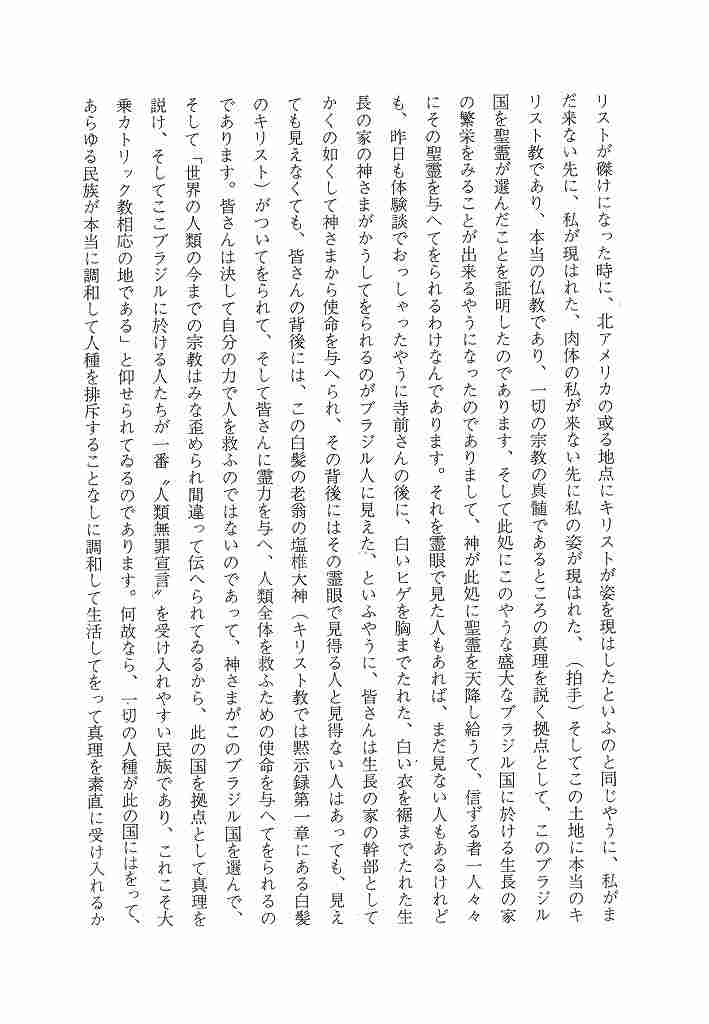 リストが磔けになった時に、北アメリカの或る地点にキリストが姿を現はしたといふのと同じやうに、私がま
だ来ない先に、私が現はれた、肉体の私が来ない先に私の姿が現はれた、（拍手）そしてこの土地に本当のキ
リスト教であり、本当の仏教であり、一切の宗教の真髄であるところの真理を説く拠点として、このブラジル
国を聖霊が選んだことを証明したのであります、そして此処にこのやうな盛大なブラジル国に於ける生長の家
の繁栄をみることが出来るやうになったのでありまして、神が此処に聖霊を天降し給うて、信ずる者一人々々
にその聖霊を与へてをられるわけなんであります。それを霊眼で見た人もあれば、まだ見ない人もあるけれど
も、昨日も体験談でおっしゃったやうに寺前さんの後に、白いヒゲを胸までたれた、白い衣を裾までたれた生
長の家の神さまがかうしてをられるのがブラジル人に見えた、といふやうに、皆さんは生長の家の幹部として
かくの如くして神さまから使命を与へられ、その背後にはその霊眼で見得る人と見得ない人はあっても、見え
ても見えなくても、皆さんの背後には、この白髪の老翁の塩椎大神（キリスト教では黙示録第一章にある白髪
のキリスト）がついてをられて、そして皆さんに霊力を与へ、人類全体を救ふための使命を与へてをられるの
であります。皆さんは決して自分の力で人を救ふのではないのであって、神さまがこのブラジル国を選んで、
そして「世界の人類の今までの宗教はみな歪められ間違って伝へられてゐるから、此の国を拠点として真理を
説け、そしてここブラジルに於ける人たちが一番〝人類無罪宣言〟を受け入れやすい民族であり、これこそ大
乗カトリック教相応の地である」と仰せられてゐるのであります。何故なら、一切の人種が此の国にはをって、
あらゆる民族が本当に調和して人種を排斥することなしに調和して生活してをって真理を素直に受け入れるか